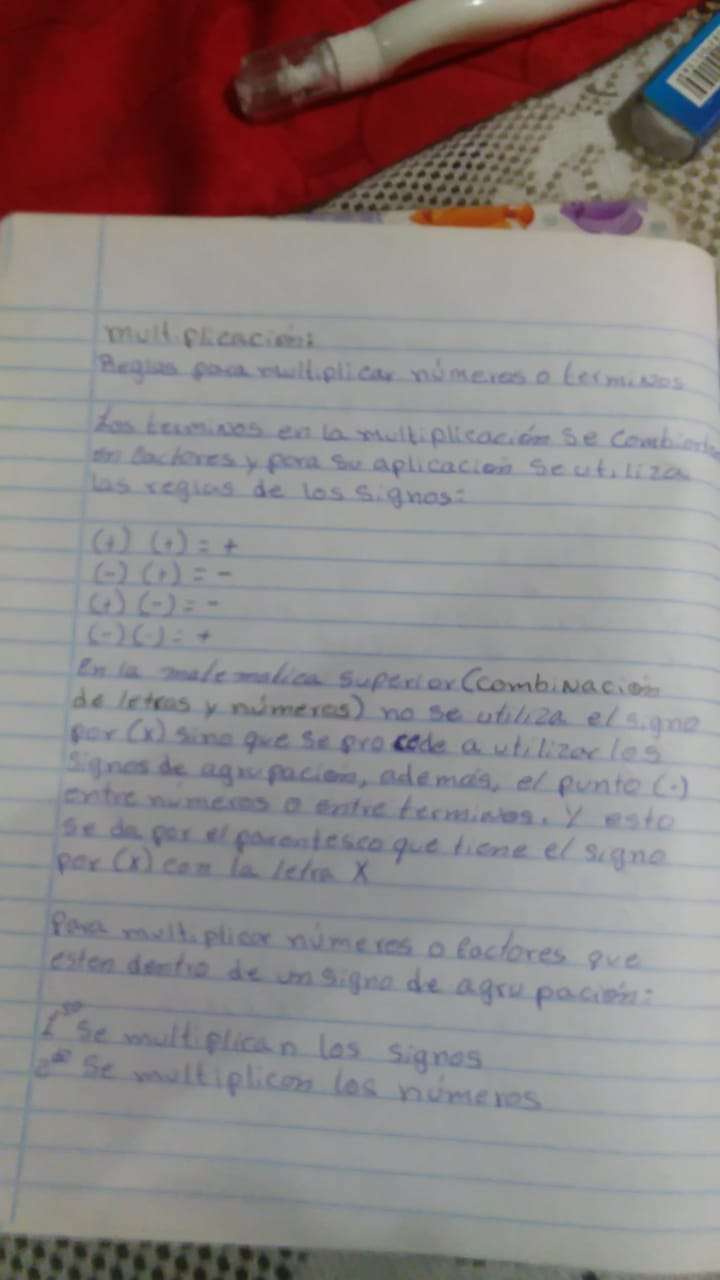 multiplicación:
Reglas para multiplicar números o terminos
Los terminos en la multiplicación se combierten
en factores y para su aplicación se utiliza
las reglas de los signos:
(+) (+) = +
(-) (+) = -
(+) (-) = -
(-) (-) = +
En la matematica superior (combinación
de letras y números) no se utiliza el signo
por (x) sino que se procede a utilizar los
signos de agrupación, además, el punto (·)
entre números o entre terminos. Y esto
se da por el parentesco que tiene el signo
por (x) con la letra X
Para multiplicar números o factores que
esten dentro de un signo de agrupación:
1ᵒ Se multiplican los signos
2ᵒ Se multiplican los números